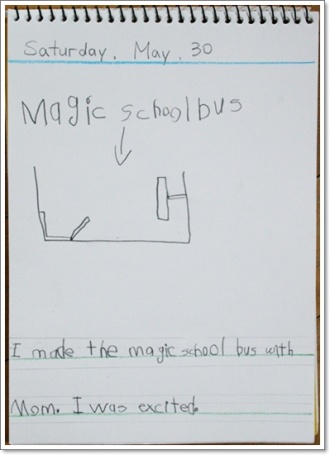 Saturday. May. 30
Magic schoolbus
I made the magic school bus with
Mom. I was excited.